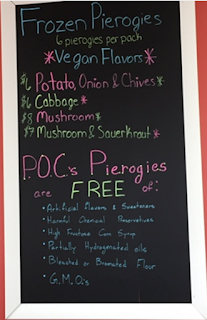 Frozen Pierogies
6 pierogies per pack
*Vegan Flavors*
$6 Potato, Onion & Chives*
$6 Cabbage*
$8 Mushroom*
$7 Mushroom & Sauerkraut*
P.O.C.'s Pierogies
are FREE of:
• Artificial Flavors & Sweeteners
• Harmful Chemical Preservatives
• High Fructose Corn Syrup
• Partially Hydrogenated oils
• Bleached or Bromated Flour
• G.M.O.'s